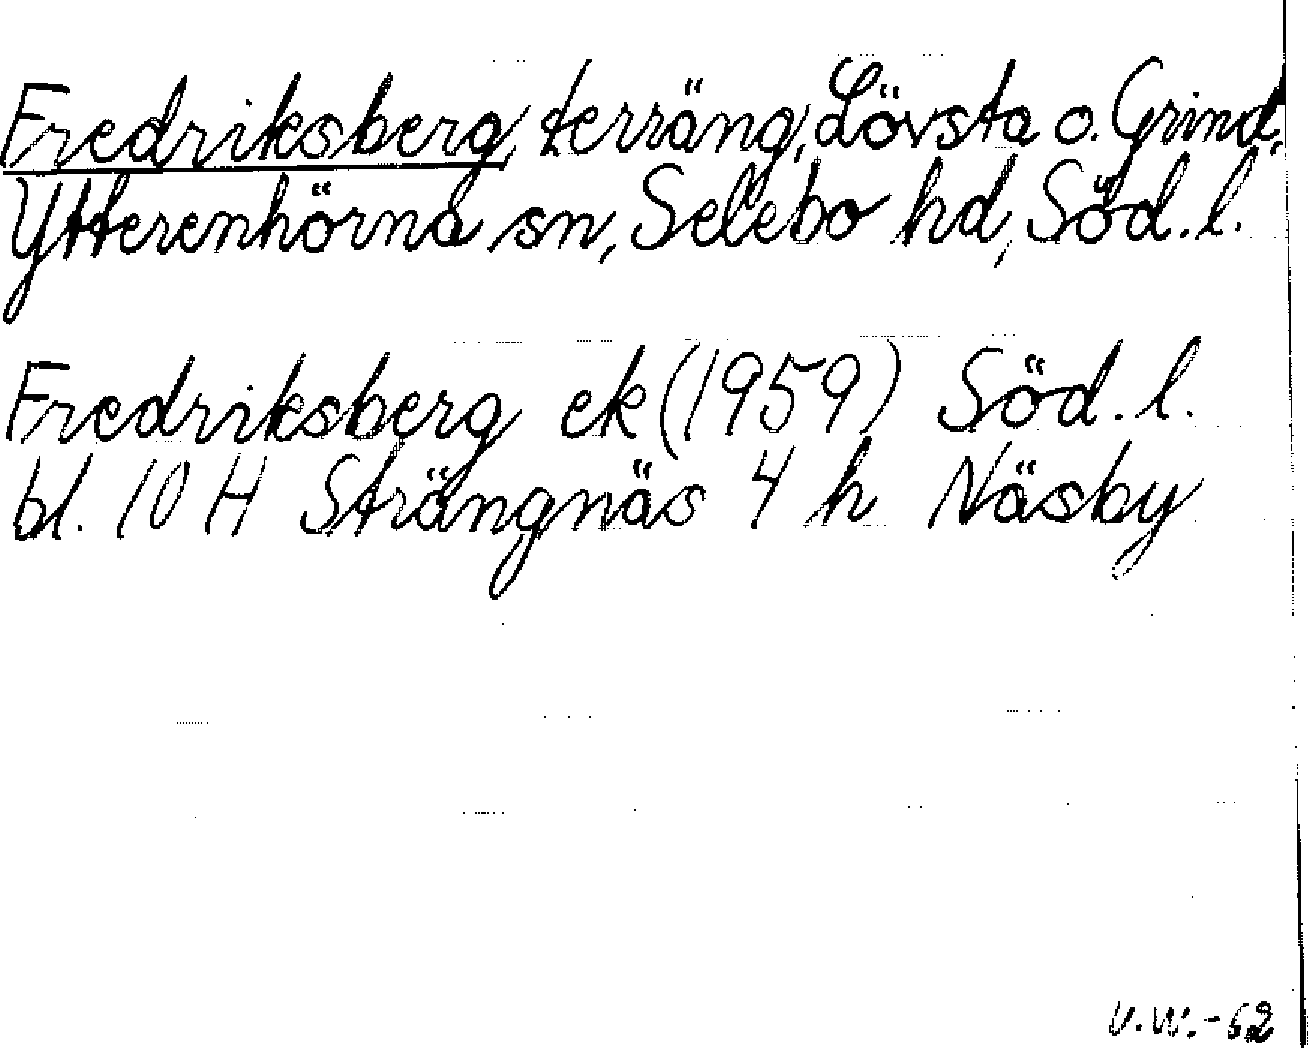 Fredriksberg, terräng, Lövsta o. Grind,
Ytterenhörna sn, Selebo hd, Söd. l.
Fredriksberg ek (1959) Söd. l.
bl. 10 H Strängnäs 4 h Näsby
V.W.-62